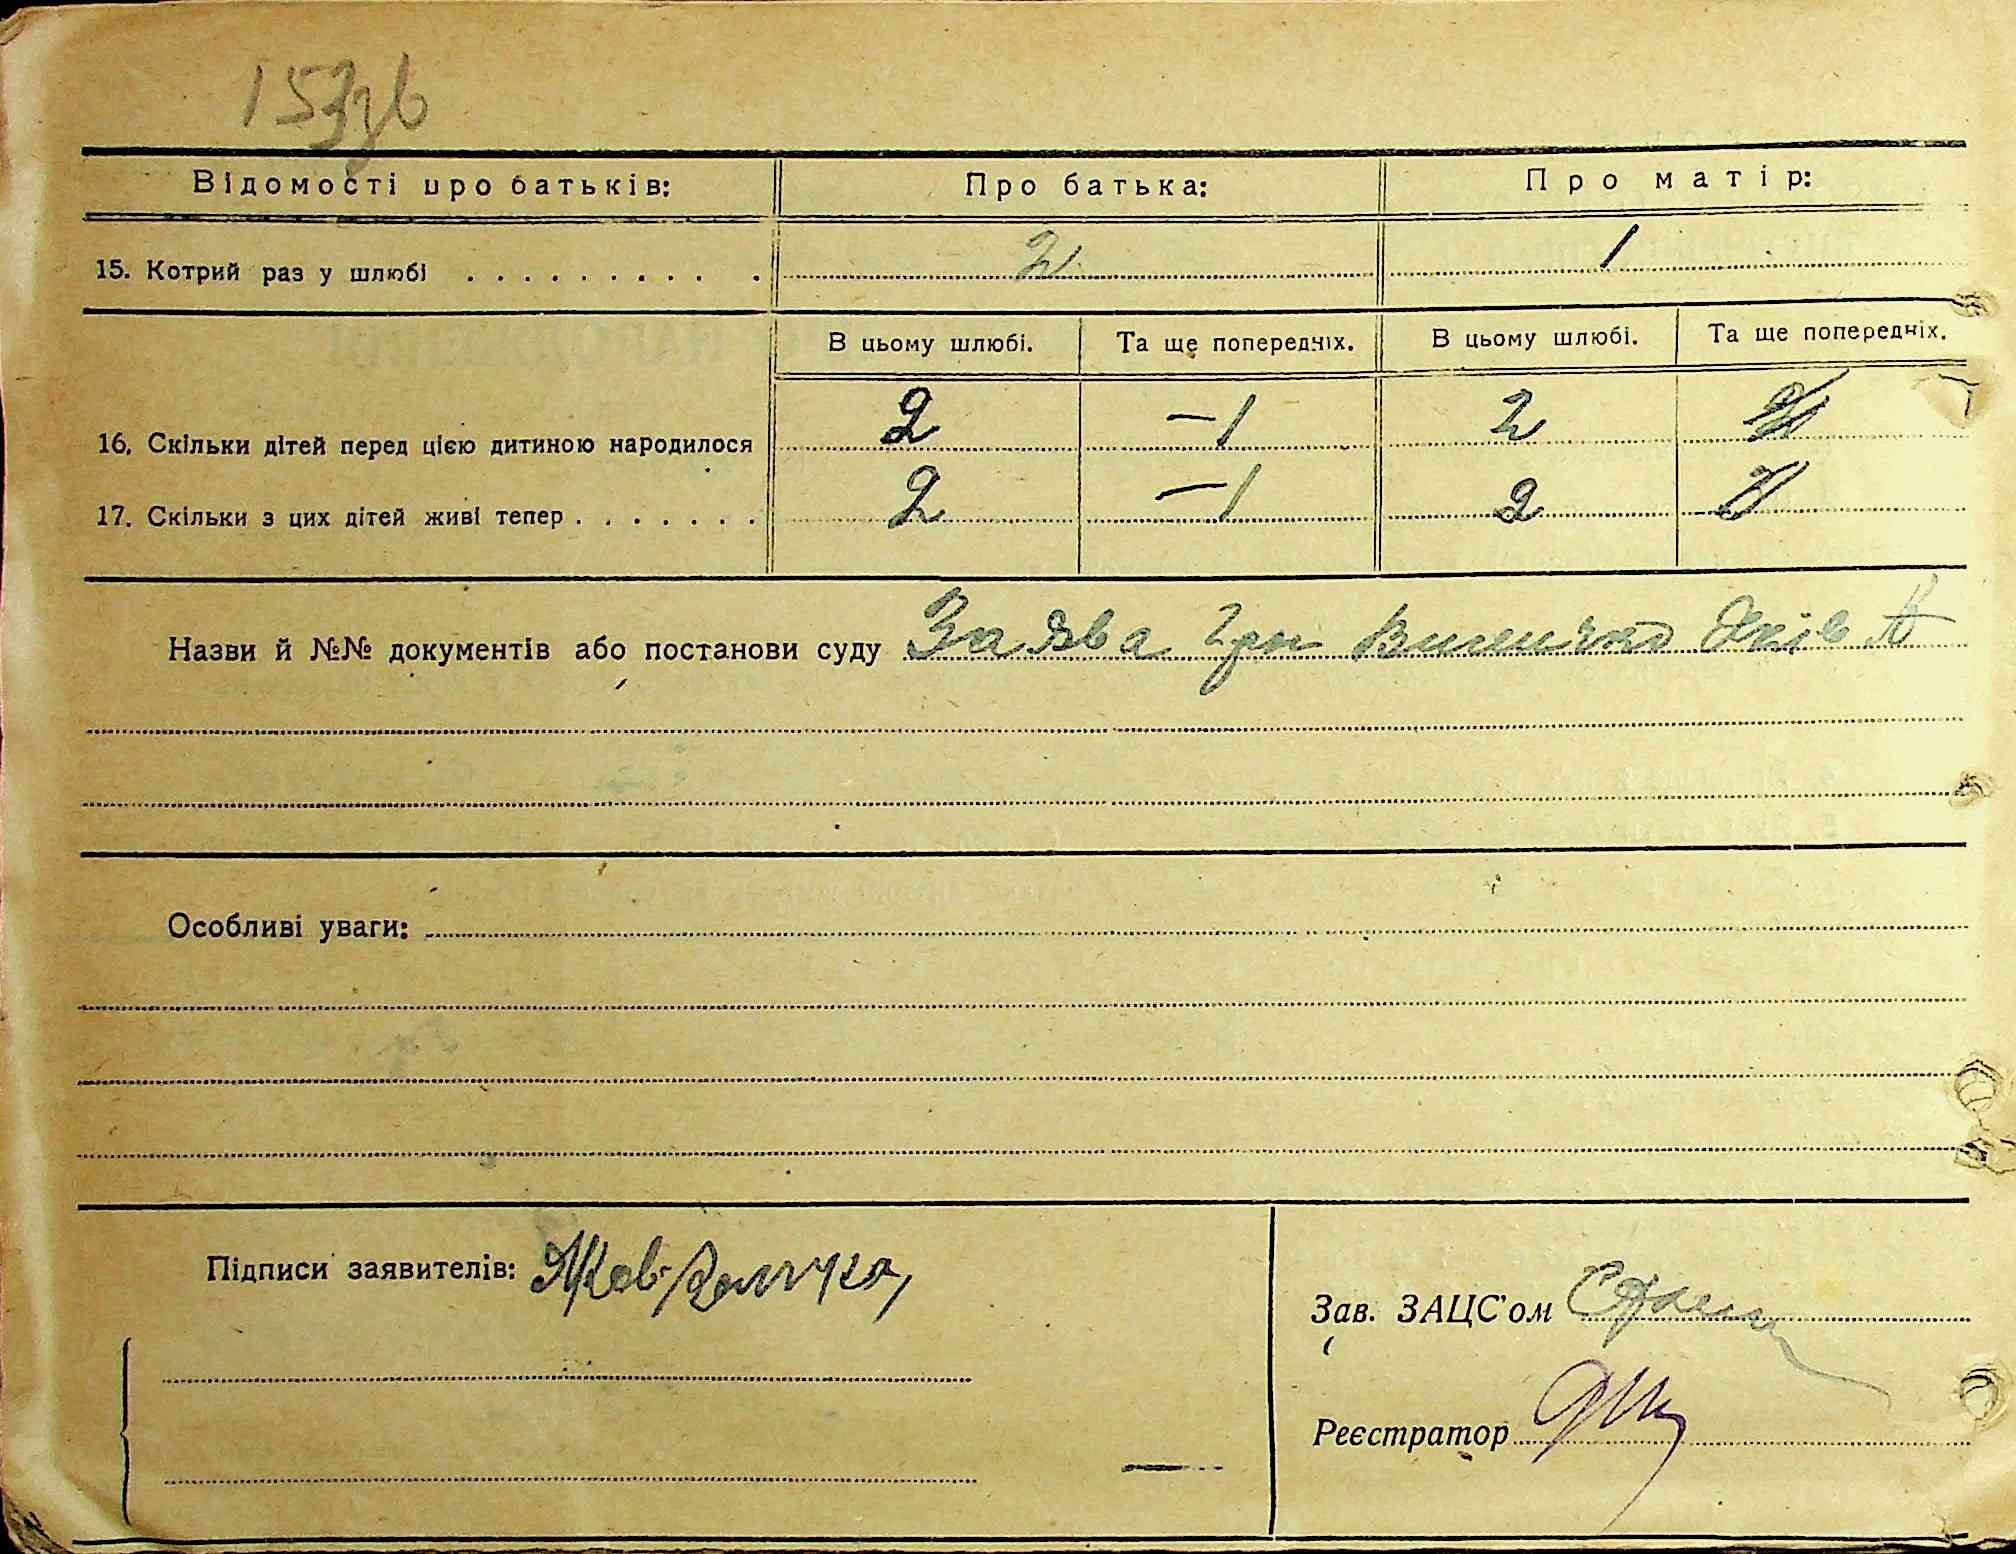 Відомості про батьків: Про батька: Про матір:
15. Котрий раз у шлюбі . . . . . . . . . . . 2 1
В цьому шлюбі. Та ще попередніх. В цьому шлюбі. Та ще попередніх.
16. Скільки дітей перед цією дитиною народилося 2 –1 2
17. Скільки з цих дітей живі тепер . . . . . . . 2 –1 2
Назви й №№ документів або постанови суду Заява гр. Яків А
Особливі уваги:
Підписи заявителів:
Зав. ЗАЦС'ом
Реєстратор